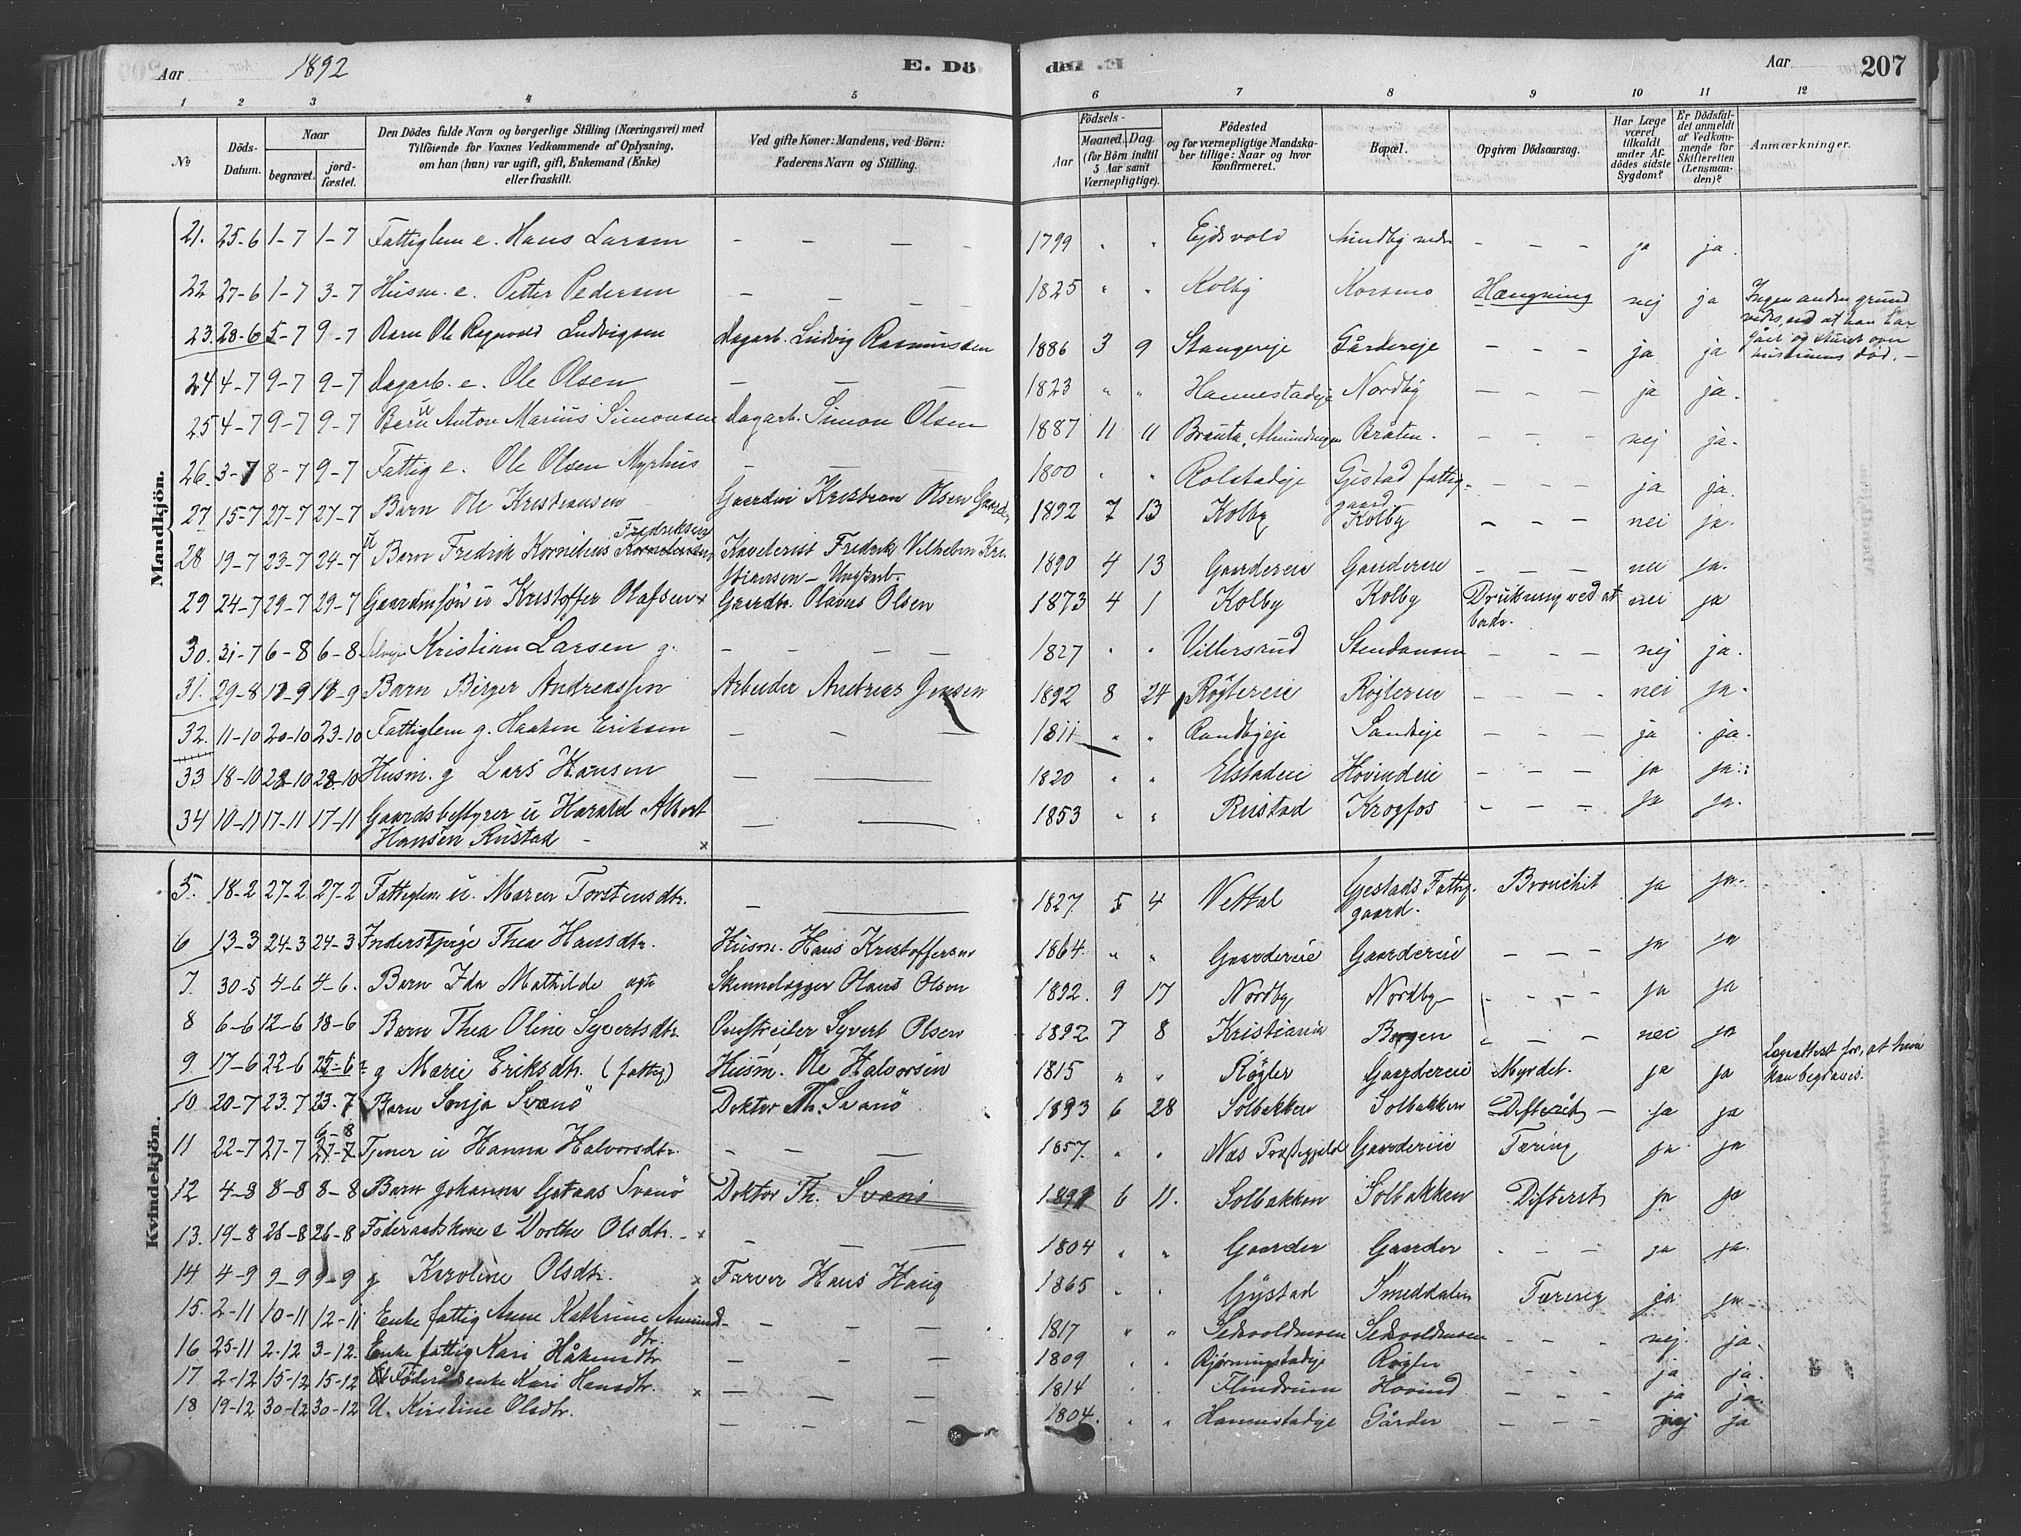 Aar 1892 E. Dö den .E Aar 207
1 2 3 4 5 6 7 8 9 10 11 12
No Döds-Datum. Naar begravet. jordfæstet. Den Dödes fulde Navn og borgerlige Stilling (Næringsvei) med Tilföiende for Voxnes Vedkommende af Oplysning, om han (hun) var ugift, gift, Enkemand (Enke) eller fraskilt. Ved gifte Koner: Mandens, ved Börn: Faderens Navn og Stilling. Födsels- Aar Maaned. Dag. (for Börn indtil 5 Aar samt Værnepligtige). Födested og for værnepligtige Mandskaber tillige: Naar og hvor konfirmeret. Bopæl. Opgiven Dödsaarsag. Har Læge været tilkaldt under Afdödes sidste Sygdom? Er Dödsfaldet anmeldt af Vedkommende for Skifteretten (Lensmanden)? Anmærkninger.
Mandkjön.
21. 25-6 1-7 1-7 Fattiglem e. Hans Larsen – – – – 1799 " " Ejdsvold – – – ja ja.
22 27-6 1-7 3-7 Husm. e. Petter Pedersen – – – – 1825 " " Kolby Korsmo Hængning nej ja Ingen anden grund
vides, end at han har
23. 28-6 5-7 9-7 Barn Ole Ragnvald Ludvigsen Dagarb. Ludvig Rasmussen 1886 3 9 Stangereje Gårdereje – – – ja ja gået og sturet over
hustruens död. –
24 4-7 9-7 9-7 Dagarb. e. Ole Olsen – – – 1823 " " Hannestadeje Nordby – – – ja ja.
25 4-7 9-7 9-7 Barn u Anton Marius Simonsen Dagarb. Simon Olsen 1887 11 11 Bråten. – – – nej ja.
26. 3-7 8-7 9-7 Fattig e. Ole Olsen Myrhus – – – 1800 " " Rolstadeje Gjestad fattiggaard – – – ja ja.
27 15-7 27-7 27-7 Barn Ole Kristiansen Kristian Olsen 1892 7 13 Kolby Kolby – – – nei ja.
28 19-7 23-7 24-7 u Barn Fredrik Kornelius Fredriksen Fredrik Vilhelm Kristiansen – 1890 4 13 Gaardereie Gaardereie – – – nei ja.
29 24-7 29-7 29-7 Gaardmsön u Kristoffer Olafsen x Gaardbr. Olavus Olsen 1873 4 1 Kolby Kolby Drukning ved at bade. nei ja
30. 31-7 6-8 6-8 Kristian Larsen g. – – – – 1827 " " Villersrud – – – nej ja.
31. 29-8 18-9 18-9 Barn Birger Andreassen Arbeider Andreas Jensen 1892 8 24 Røglereie Røglereie – – – nei ja.
32. 11-10 20-10 23-10 Fattiglem g. Haaken Eriksen – – – 1811 " " Sandeje – – – ja ja.
33 18-10 28-10 28-10 Husm. g Lars Hansen – – 1820 " " Elstadeie Hovindeie – – – ja ja.
34 10-11 17-11 17-11 Gaardsbestyrer u Harald Albert – – 1853 " " Rustad Krogfos – – – ja ja.
Hansen Rustad – x
Kvindekjön.
5. 18-2 27-2 27-2 Fattiglem u. Maren Torstensdtr. – – 1827. 5 4 Vettal Gjestads Fattiggaard. Bronchit ja ja.
6 13-3 24-3 24-3 Inderstpige Thea Hansdtr. Husm. Hans Kristoffersen 1864. " " Gaardereie Gaardereie – – – ja ja
7. 30-5 4-6 4-6. Barn Ida Mathilde ægte Skinnelægger Olaus Olsen 1892. 9 17 Nordby Nordby – – – ja ja
8 6-6 12-6 18-6 Barn Thea Oline Syvertsdtr. Syvert Olsen 1892 7 8 Kristiania – – – nei ja
9. 17-6 22-6 25-6 g Marie Eriksdtr. (fattig) Husm. Ole Halvorsen 1815 " " Røgler Gaardereie Myrdet. ja ja Lægeattest for, at hun
kan begraves.
10 20-7 23.7 23.7 Barn Sonja Svanö Doktor Th. Svanö 1893 6 28 Solbakken Solbakken Difterit – ja ja
11 22-7 27-7 6-8 27-7 Tjener u Hanna Halvorsdtr. – – – 1857. " " Næs Præstegjeld Gaardereie Tæring ja ja
12 4-8 8-8 8-8 Barn Johanna Gataas Svanö Doktor Th. Svanö 1891 6 11. Solbakken Solbakken Difterit ja ja
13. 19-8 26-8 26-8 Föderaadskone e Dorthe Olsdtr. – x – – – 1804 " " Gaarder Gaarder – – – ja ja.
14 4-9 9-9 9-9 g Karoline Olsdtr. x Farver Hans Haug 1865 " " Gjestad Smeddalen Tæring ja ja
15. 2-11 10-11 12-11 Enke fattig Anne Kathrine Amundsdtr. – – – 1817 " " Sedvoldmoen Sedvoldmoen – – – nej. ja.
16 25-11 2.12 3-12. Enke fattig Kari Håkensdtr – – – 1809 " " Røgler – – – ja ja.
17 2-12 15-12 15-12 Föderådsenke Kari Hansdtr. x – – – 1814 " " Flindrum Hovind – – – ja ja
18 19-12 30-12 30-12 U. Kirstine Olsdtr. – – – 1804. " " Hannestadeje Gårder – – – nej ja